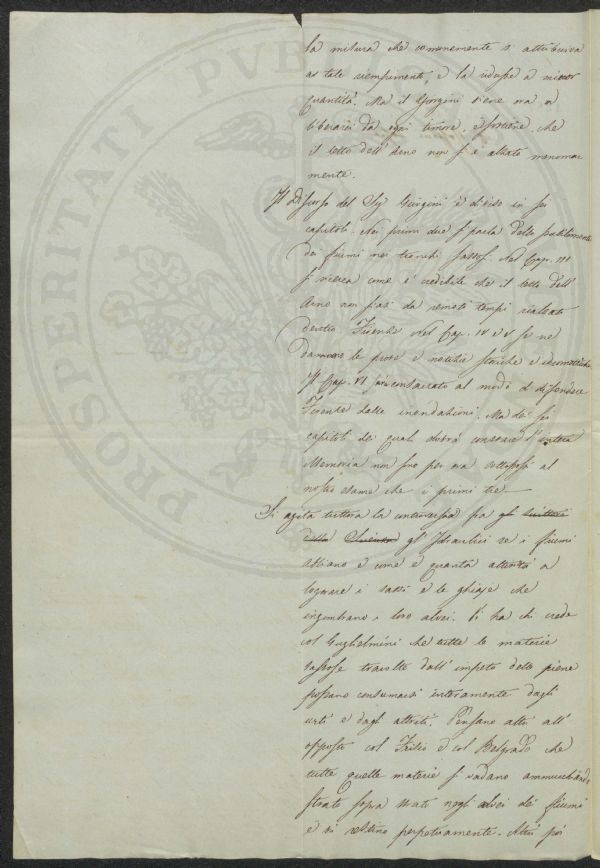 la misura che comunemente si attribuiva
a tale riempimento, e la ridusse a minor
quantità. Ma il Giorgini viene ora a
liberarci da ogni timore, e sostiene, che
il letto dell'Arno non si è alzato menomamente
mente.
Il Discorso del Sig. Giorgini è diviso in sei
capitoli. Nei primi due si parla dello stabilimento
dei fiumi nei tronchi sassosi. Nel Cap. III
si ricerca come è credibile che il letto dell'
Arno non siasi da remoti tempi rialzato
dentro Firenze. Nel Cap. IV e V se ne
daranno le prove e notizie storiche e
Il Cap. VI sarà consacrato al modo di difendere
Firenze dalle inondazioni. Ma dei sei
capitoli dei quali dovrà constare l'intera
Memoria non sono per ora sottoposti al
nostro esame che i primi tre.
Si agita tuttora la controversia fra gli scrittori
della Scienza gl'Idraulici se i fiumi
abbiano e come e quanta attività a
logorare i sassi e le ghiaje che
ingombrano i loro alvei. Vi ha chi crede
col Guglielmini che tutte le materie
sassose travolte dall'impeto delle piene
possano consumarsi interamente dagli
urti e dagli attriti. Pensano altri all'
opposto col Frisio e col Belgrado che
tutte quelle materie si vadano ammucchiando
strato sopra strato negli alvei de' fiumi
e vi restino perpetuamente. Altri poi
PROSPERITATI PVBLICAE